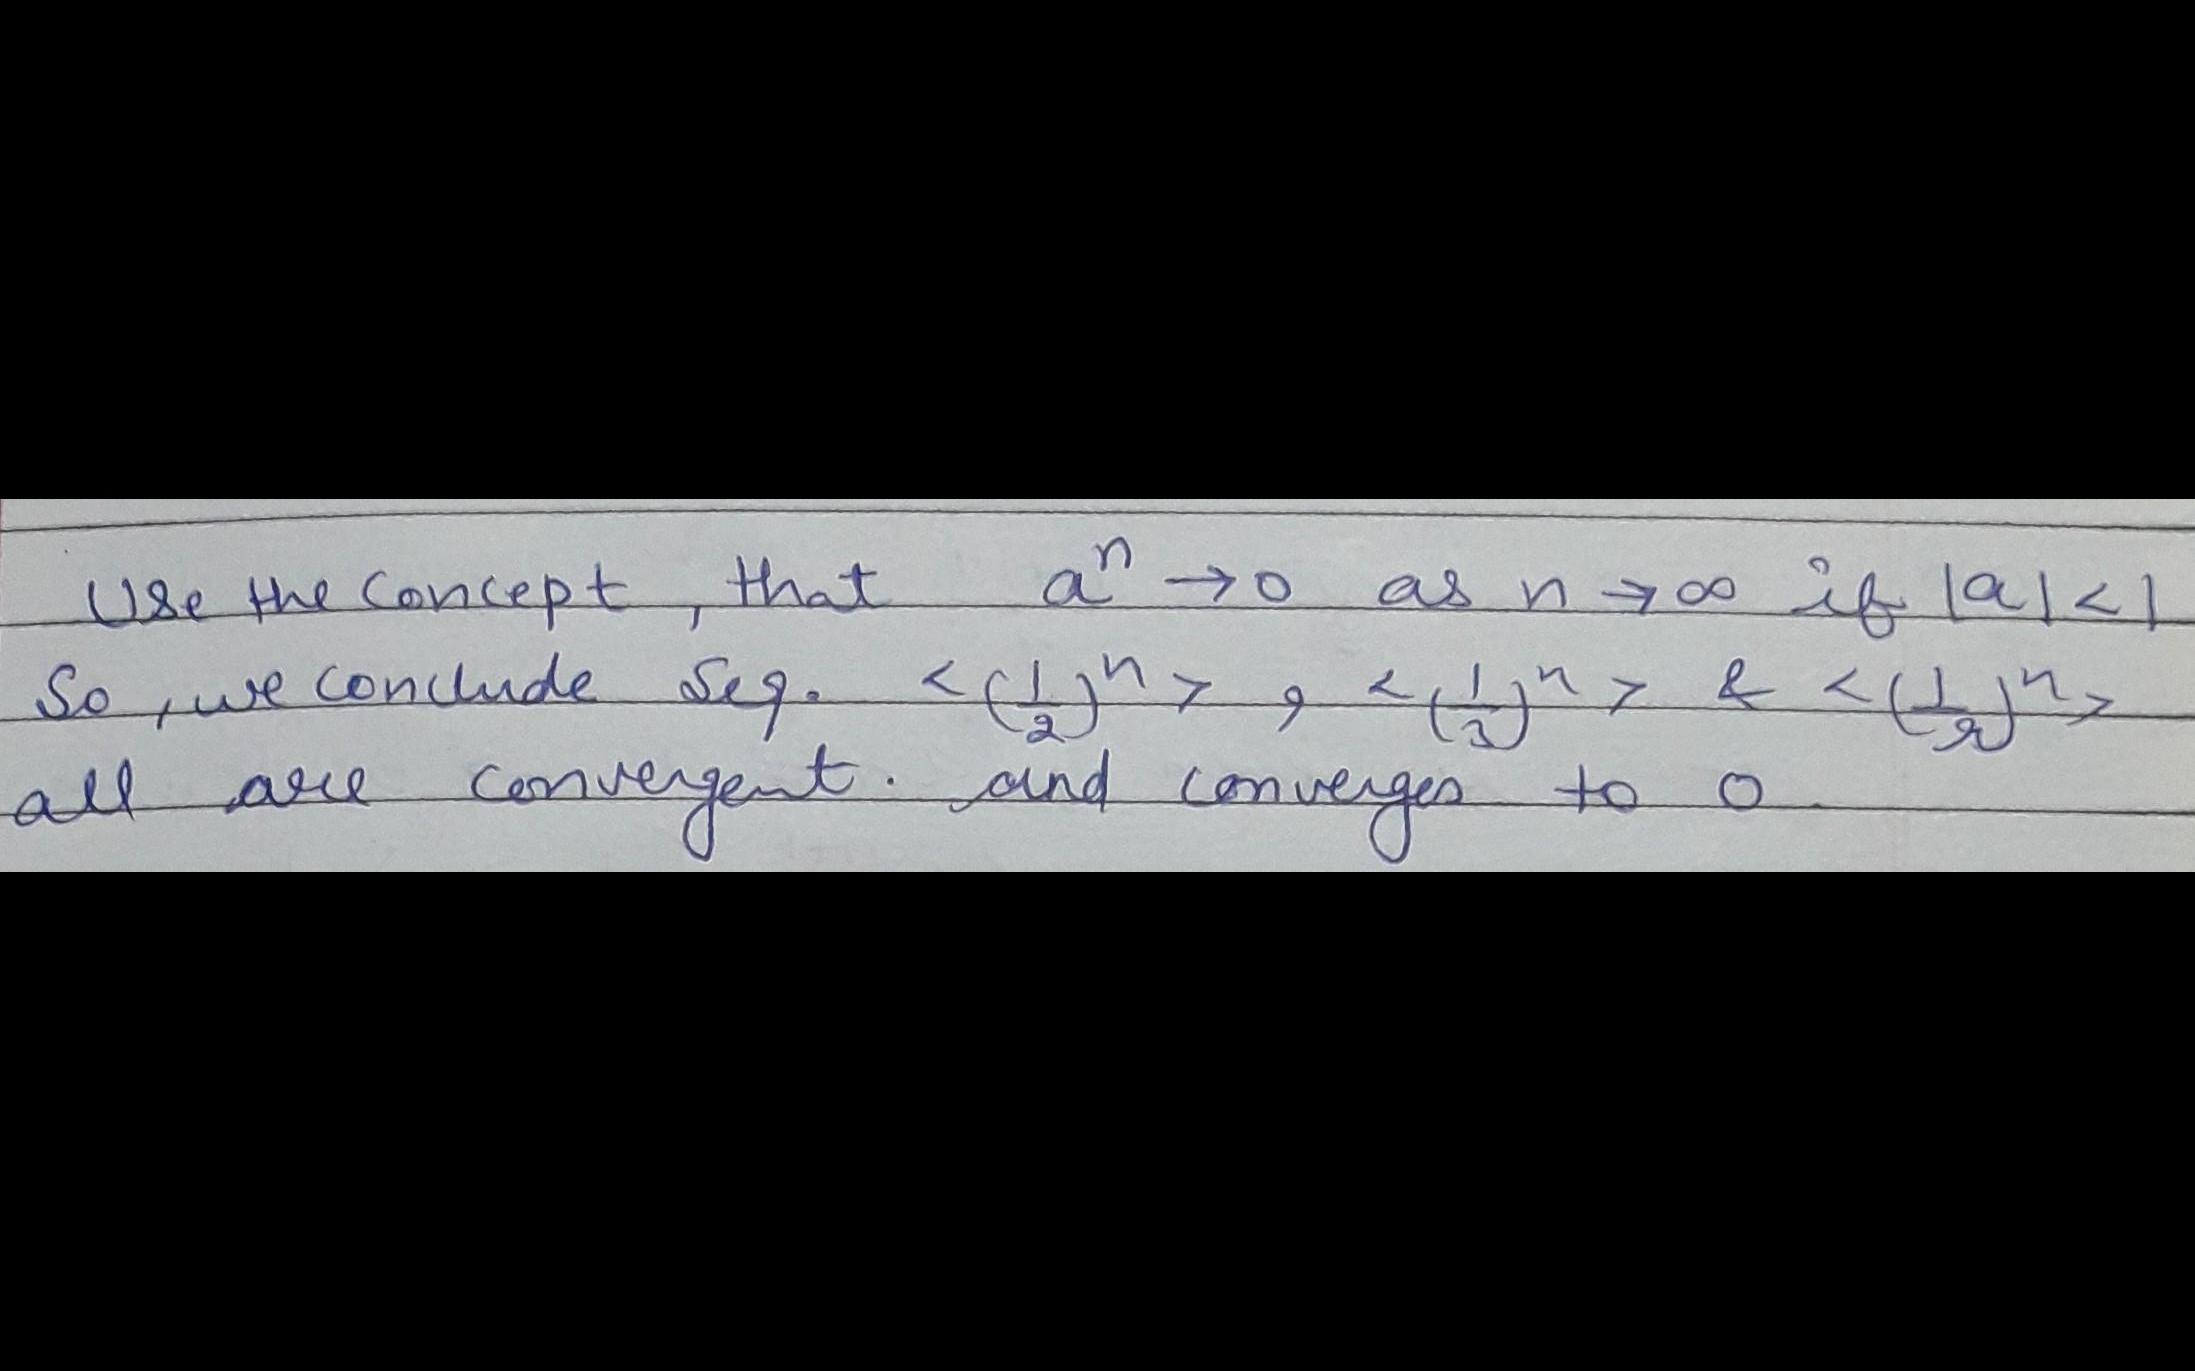 Use the concept, that aⁿ → 0 as n → ∞ if |a| < 1
So, we conclude Seq. < (1/2)ⁿ > , < (1/3)ⁿ > & < (1/r)ⁿ >
all are convergent. and converges to 0